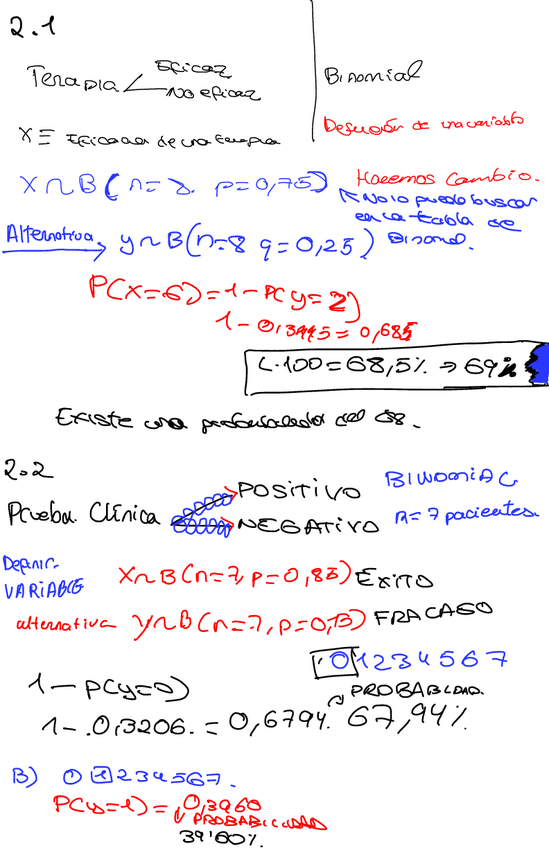 2.1
Terapia Eficaz
No eficaz
Binomial
Definición de una variable
X ≡ Eficacia de una terapia
X ~ B(n= 8 p=0,75) Hacemos Cambio.
No lo puedo buscar
en la tabla de
Binomial.
Alternativa y ~ B(n=8 q=0,25)
P(X=6) = 1 - P(y=2)
= 0,685
(·100 = 68,5% → 69%
Existe una probabilidad del
2.2
Prueba Clínica POSITIVO
NEGATIVO
BINOMIAL
n= 7 pacientes
Definir
VARIABLE
X ~ B(n=7, p=0,85) ÉXITO
alternativa y ~ B(n=7, p=0,15) FRACASO
0 1 2 3 4 5 6 7
1 - P(y=0) PROBABILIDAD.
1 - 0,3206. = 0,6794. 67,94%.
B) 0 1 2 3 4 5 6 7.
P(y=1) = 0,3960
PROBABILIDAD
39'60%.